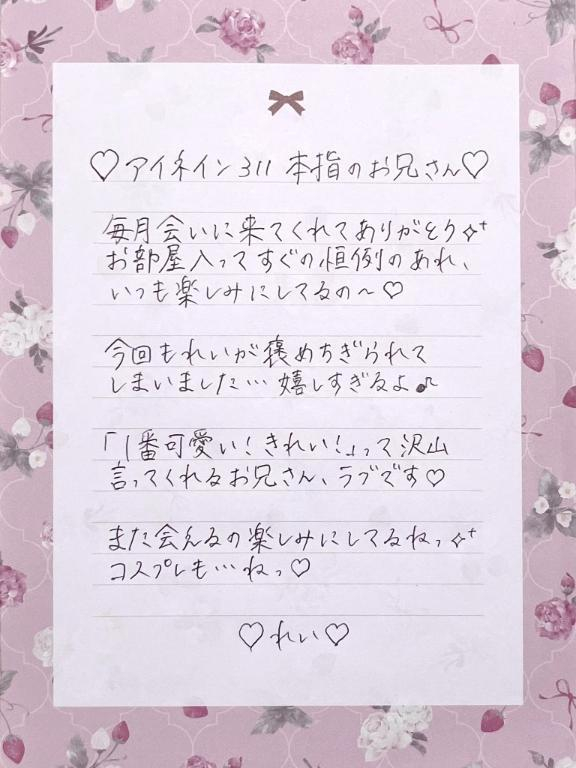 ♡アイネイン311 本指のお兄さん♡
毎月会いに来てくれてありがとう✧⁺
お部屋入ってすぐの恒例のあれ、
いつも楽しみにしてるの〜♡
今回もれいが褒めちぎられて
しまいました… 嬉しすぎるよ♪
「1番可愛い!きれい!」って沢山
言ってくれるお兄さん、ラブです♡
また会えるの楽しみにしてるねっ✧⁺
コスプレも…ねっ♡
♡れい♡